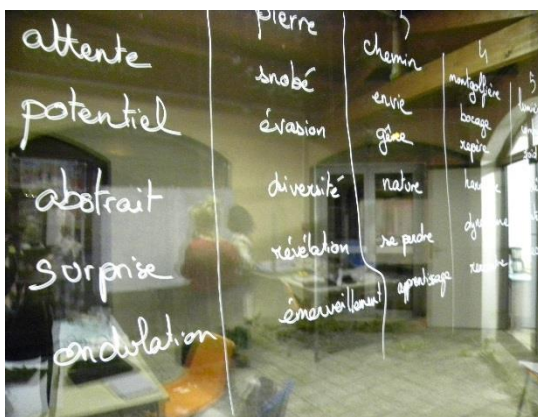 attente
potentiel
abstrait
surprise
ondulation
pierre
snobé
évasion
diversité
révélation
émerveillement
3
chemin
envie
gêne
nature
se perdre
apprentissage
4
montgolfière
bocage
repère
5